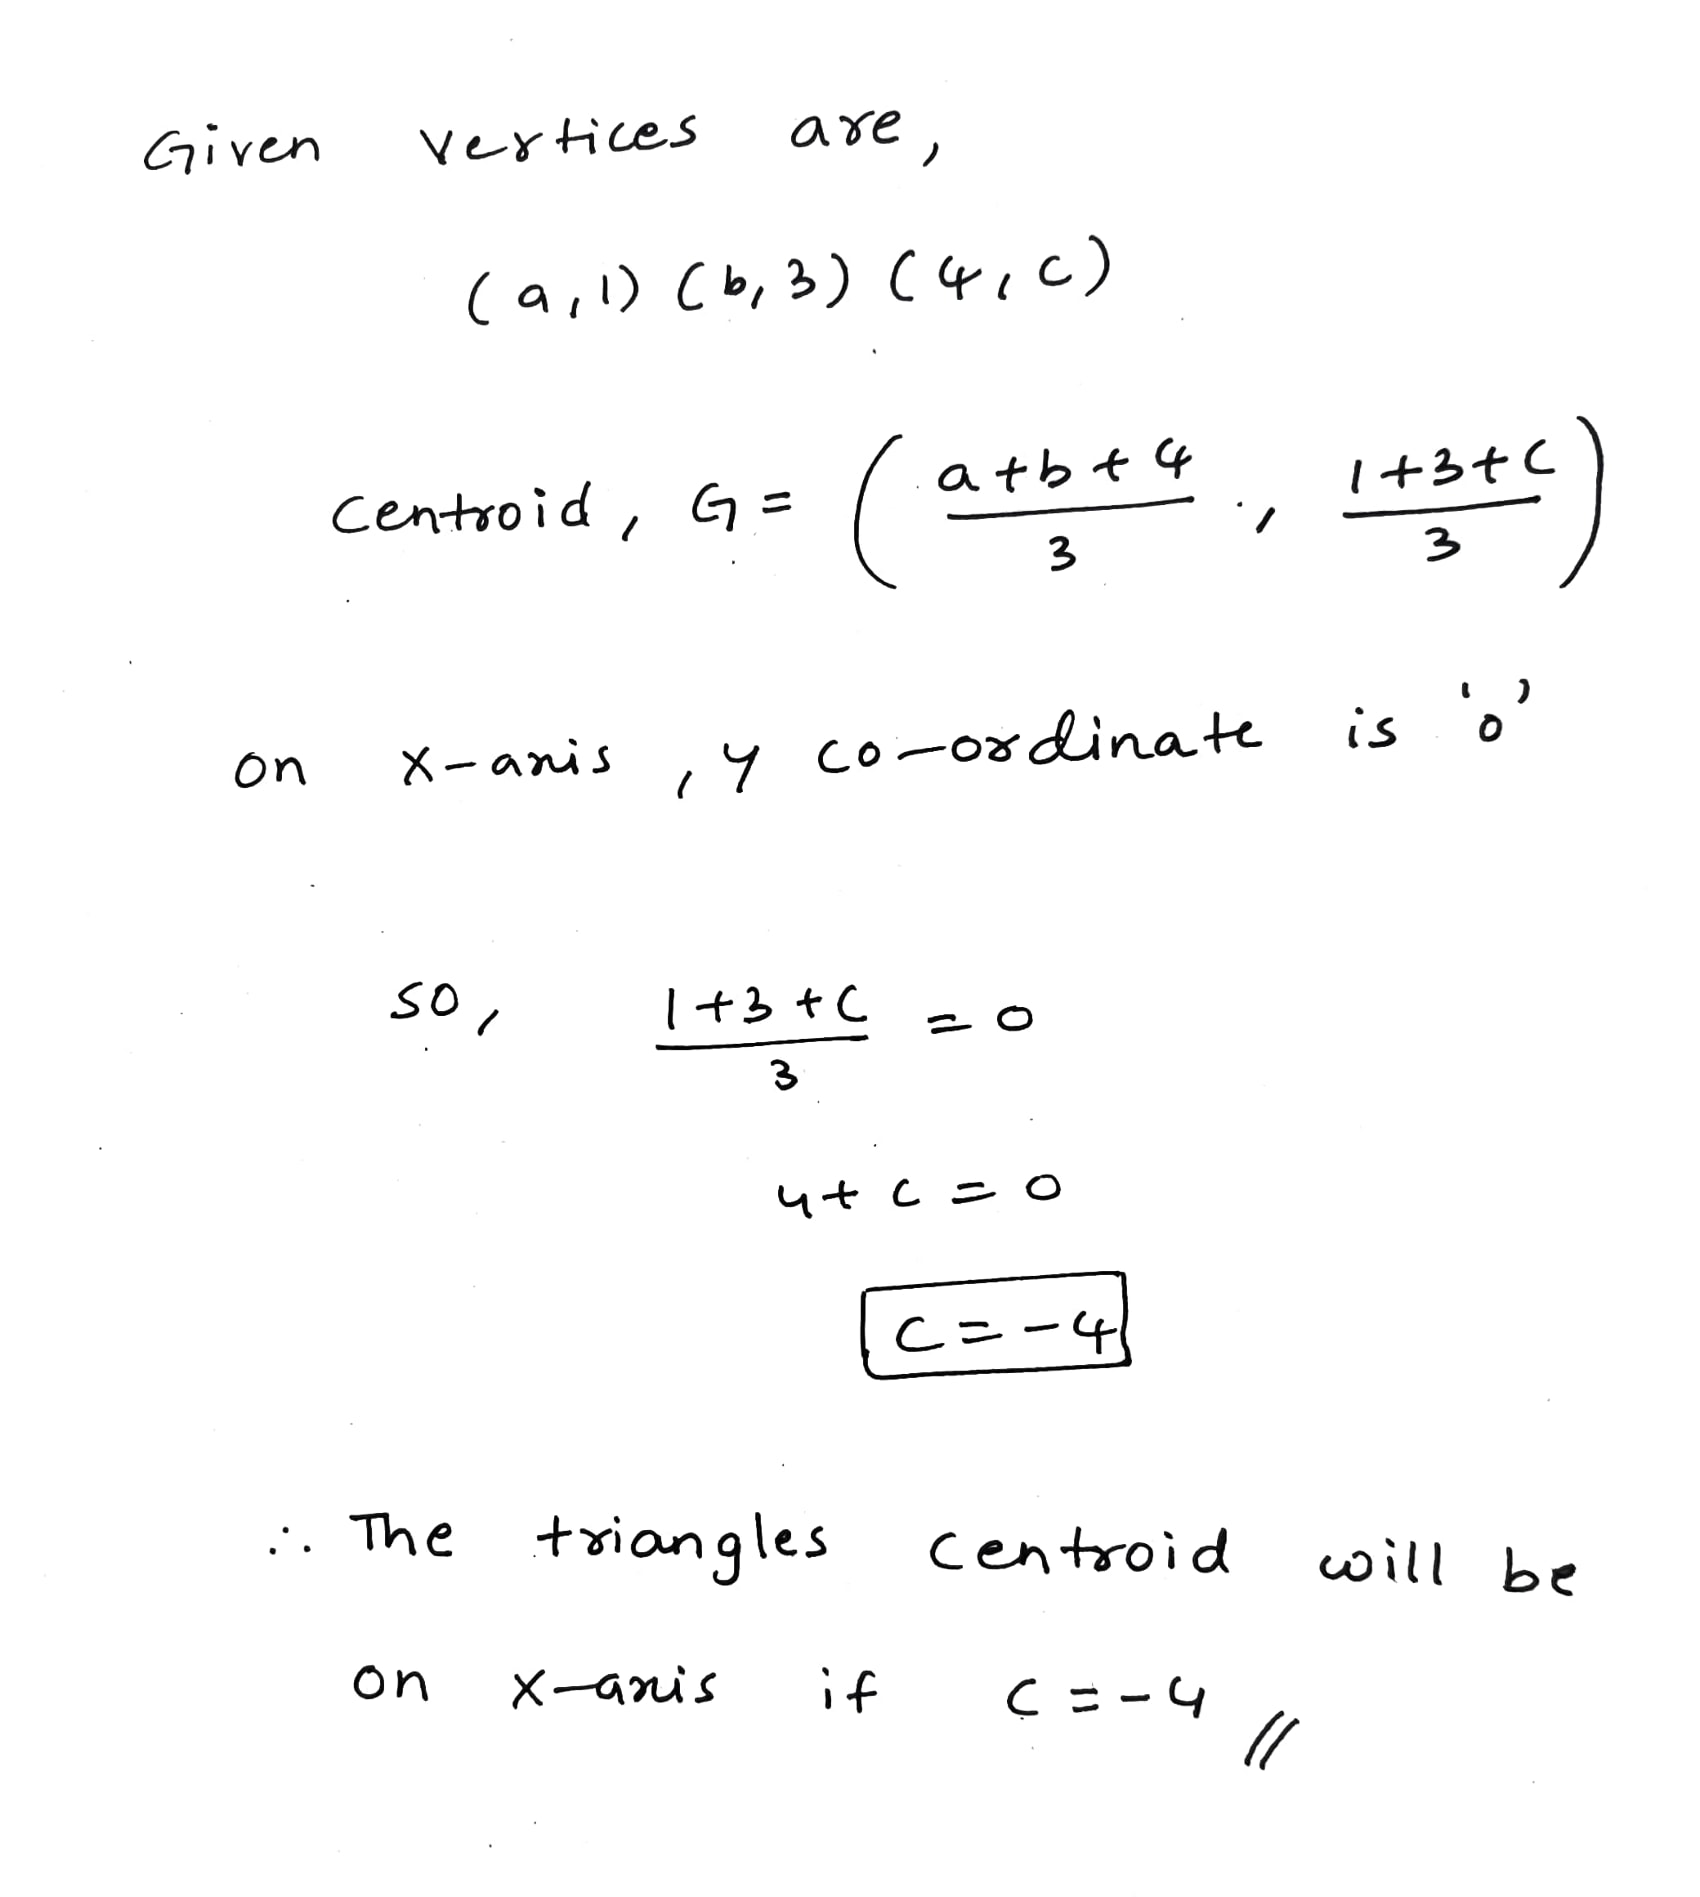 Given vertices are,
(a,1) (b,3) (4,c)
centroid, G = ( a+b+4 / 3 , 1+3+c / 3 )
on x-axis, y co-ordinate is '0'
so, 1+3+c / 3 = 0
4+c=0
c=-4
∴ The triangles centroid will be
on x-axis if c=-4 //